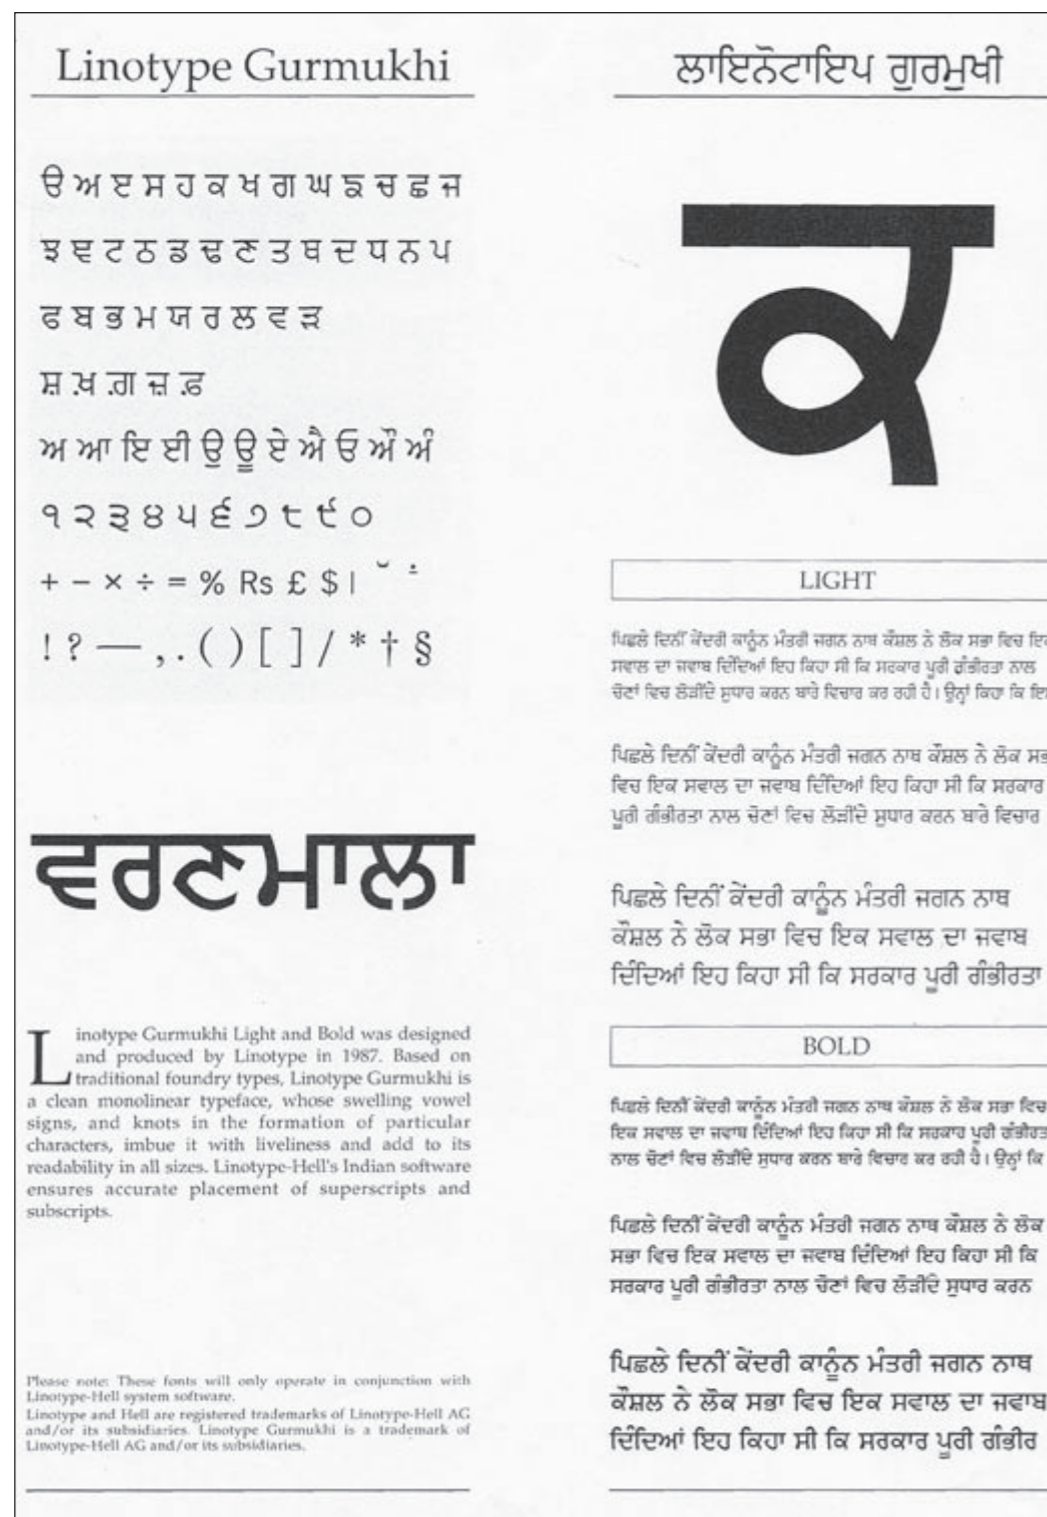 Linotype Gurmukhi
ੳ ਅ ੲ ਸ ਹ ਕ ਖ ਗ ਘ ਙ ਚ ਛ ਜ
ਝ ਞ ਟ ਠ ਡ ਢ ਣ ਤ ਥ ਦ ਧ ਨ ਪ
ਫ ਬ ਭ ਮ ਯ ਰ ਲ ਵ ੜ
ਸ਼ ਖ਼ ਗ਼ ਜ਼ ਫ਼
ਅ ਆ ਇ ਈ ਉ ਊ ਏ ਐ ਓ ਔ ਅੰ
੧ ੨ ੩ ੪ ੫ ੬ ੭ ੮ ੯ ੦
+ − × ÷ = % Rs £ $ | ˘
! ? — , . ( ) [ ] / * † §
ਵਰਣਮਾਲਾ
Linotype Gurmukhi Light and Bold was designed
and produced by Linotype in 1987. Based on
traditional foundry types, Linotype Gurmukhi is
a clean monolinear typeface, whose swelling vowel
signs, and knots in the formation of particular
characters, imbue it with liveliness and add to its
readability in all sizes. Linotype-Hell's Indian software
ensures accurate placement of superscripts and
subscripts.
Please note: These fonts will only operate in conjunction with
Linotype-Hell system software.
Linotype and Hell are registered trademarks of Linotype-Hell AG
and/or its subsidiaries. Linotype Gurmukhi is a trademark of
Linotype-Hell AG and/or its subsidiaries.
ਲਾਇਨੋਟਾਇਪ ਗੁਰਮੁਖੀ
ਕ
LIGHT
ਪਿਛਲੇ ਦਿਨੀਂ ਕੇਂਦਰੀ ਕਾਨੂੰਨ ਮੰਤਰੀ ਜਗਨ ਨਾਥ ਕੌਸ਼ਲ ਨੇ ਲੋਕ ਸਭਾ ਵਿਚ
ਸਵਾਲ ਦਾ ਜਵਾਬ ਦਿੰਦਿਆਂ ਇਹ ਕਿਹਾ ਸੀ ਕਿ ਸਰਕਾਰ ਪੂਰੀ ਗੰਭੀਰਤਾ ਨਾਲ
ਚੋਣਾਂ ਵਿਚ ਲੋੜੀਂਦੇ ਸੁਧਾਰ ਕਰਨ ਬਾਰੇ ਵਿਚਾਰ ਕਰ ਰਹੀ ਹੈ। ਉਨ੍ਹਾਂ ਕਿਹਾ ਕਿ
ਪਿਛਲੇ ਦਿਨੀਂ ਕੇਂਦਰੀ ਕਾਨੂੰਨ ਮੰਤਰੀ ਜਗਨ ਨਾਥ ਕੌਸ਼ਲ ਨੇ ਲੋਕ
ਵਿਚ ਇਕ ਸਵਾਲ ਦਾ ਜਵਾਬ ਦਿੰਦਿਆਂ ਇਹ ਕਿਹਾ ਸੀ ਕਿ ਸਰਕਾਰ
ਪੂਰੀ ਗੰਭੀਰਤਾ ਨਾਲ ਚੋਣਾਂ ਵਿਚ ਲੋੜੀਂਦੇ ਸੁਧਾਰ ਕਰਨ ਬਾਰੇ ਵਿਚਾਰ
ਪਿਛਲੇ ਦਿਨੀਂ ਕੇਂਦਰੀ ਕਾਨੂੰਨ ਮੰਤਰੀ ਜਗਨ ਨਾਥ
ਕੌਸ਼ਲ ਨੇ ਲੋਕ ਸਭਾ ਵਿਚ ਇਕ ਸਵਾਲ ਦਾ ਜਵਾਬ
ਦਿੰਦਿਆਂ ਇਹ ਕਿਹਾ ਸੀ ਕਿ ਸਰਕਾਰ ਪੂਰੀ ਗੰਭੀਰਤਾ
BOLD
ਪਿਛਲੇ ਦਿਨੀਂ ਕੇਂਦਰੀ ਕਾਨੂੰਨ ਮੰਤਰੀ ਜਗਨ ਨਾਥ ਕੌਸ਼ਲ ਨੇ ਲੋਕ ਸਭਾ ਵਿਚ
ਇਕ ਸਵਾਲ ਦਾ ਜਵਾਬ ਦਿੰਦਿਆਂ ਇਹ ਕਿਹਾ ਸੀ ਕਿ ਸਰਕਾਰ ਪੂਰੀ ਗੰਭੀਰਤਾ
ਨਾਲ ਚੋਣਾਂ ਵਿਚ ਲੋੜੀਂਦੇ ਸੁਧਾਰ ਕਰਨ ਬਾਰੇ ਵਿਚਾਰ ਕਰ ਰਹੀ ਹੈ। ਉਨ੍ਹਾਂ ਕਿ
ਪਿਛਲੇ ਦਿਨੀਂ ਕੇਂਦਰੀ ਕਾਨੂੰਨ ਮੰਤਰੀ ਜਗਨ ਨਾਥ ਕੌਸ਼ਲ ਨੇ ਲੋਕ
ਸਭਾ ਵਿਚ ਇਕ ਸਵਾਲ ਦਾ ਜਵਾਬ ਦਿੰਦਿਆਂ ਇਹ ਕਿਹਾ ਸੀ ਕਿ
ਸਰਕਾਰ ਪੂਰੀ ਗੰਭੀਰਤਾ ਨਾਲ ਚੋਣਾਂ ਵਿਚ ਲੋੜੀਂਦੇ ਸੁਧਾਰ ਕਰਨ
ਪਿਛਲੇ ਦਿਨੀਂ ਕੇਂਦਰੀ ਕਾਨੂੰਨ ਮੰਤਰੀ ਜਗਨ ਨਾਥ
ਕੌਸ਼ਲ ਨੇ ਲੋਕ ਸਭਾ ਵਿਚ ਇਕ ਸਵਾਲ ਦਾ ਜਵਾਬ
ਦਿੰਦਿਆਂ ਇਹ ਕਿਹਾ ਸੀ ਕਿ ਸਰਕਾਰ ਪੂਰੀ ਗੰਭੀਰ